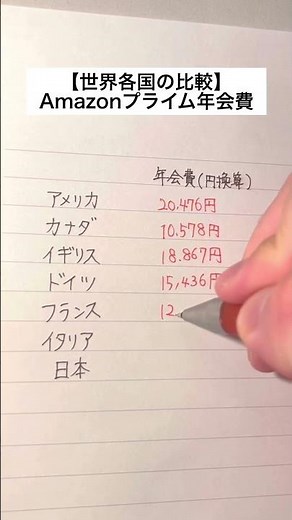 【世界各国の比較】
Amazonプライム年会費
年会費(円換算)
アメリカ 20.476円
カナダ 10.578円
イギリス 18.867円
ドイツ 15,436円
フランス 12
イタリア
日本